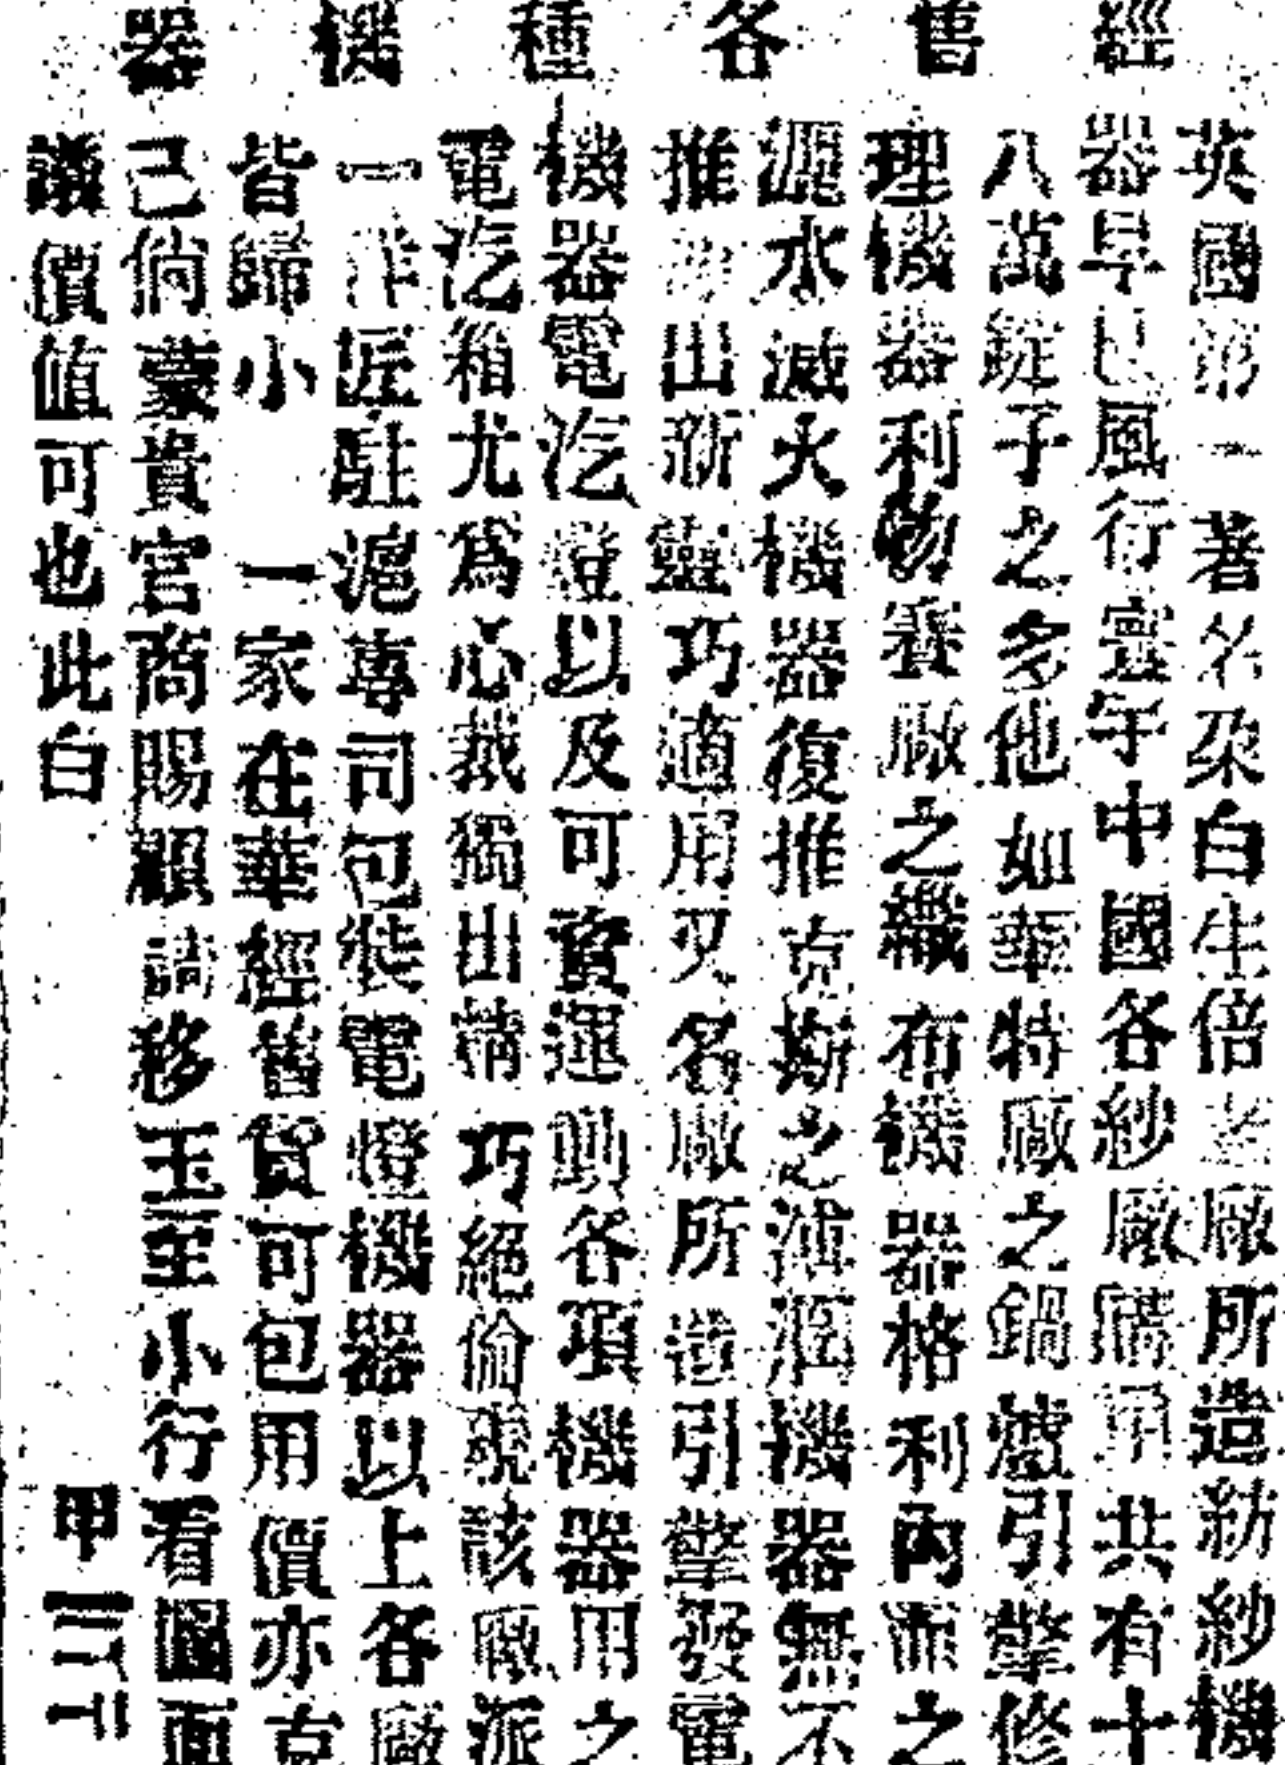 經售各種機器
英國第一著名朶白生倍廠所造紡紗機
器早已風行寰宇中國各紗廠購用共有十
八萬錠子之多他如華特廠之鍋爐引擎修
理機器利物賽廠之織布機器格利丙而之
灑水滅火機器復推克斯之浦油機器無不
推出新靈巧適用又名廠所造引擎發電
機器電汽燈以及可資運動各項機器用之
電汽箱尤爲心裁獨出精巧絕倫現該廠派
一匠駐滬專司包裝電燈機器以上各廠
皆歸小一家在華經售貨可包用價亦克
己倘蒙貴官商賜顧請移玉至小行看圖面
議價值可也此白
甲